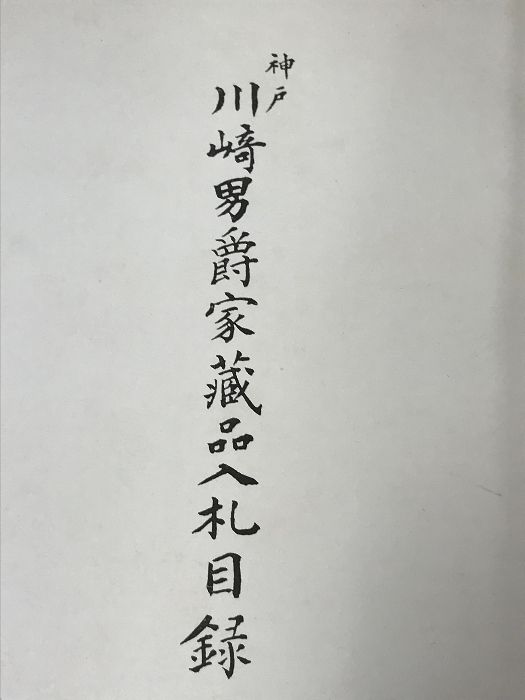 神戸
川﨑男爵家藏品入札目録